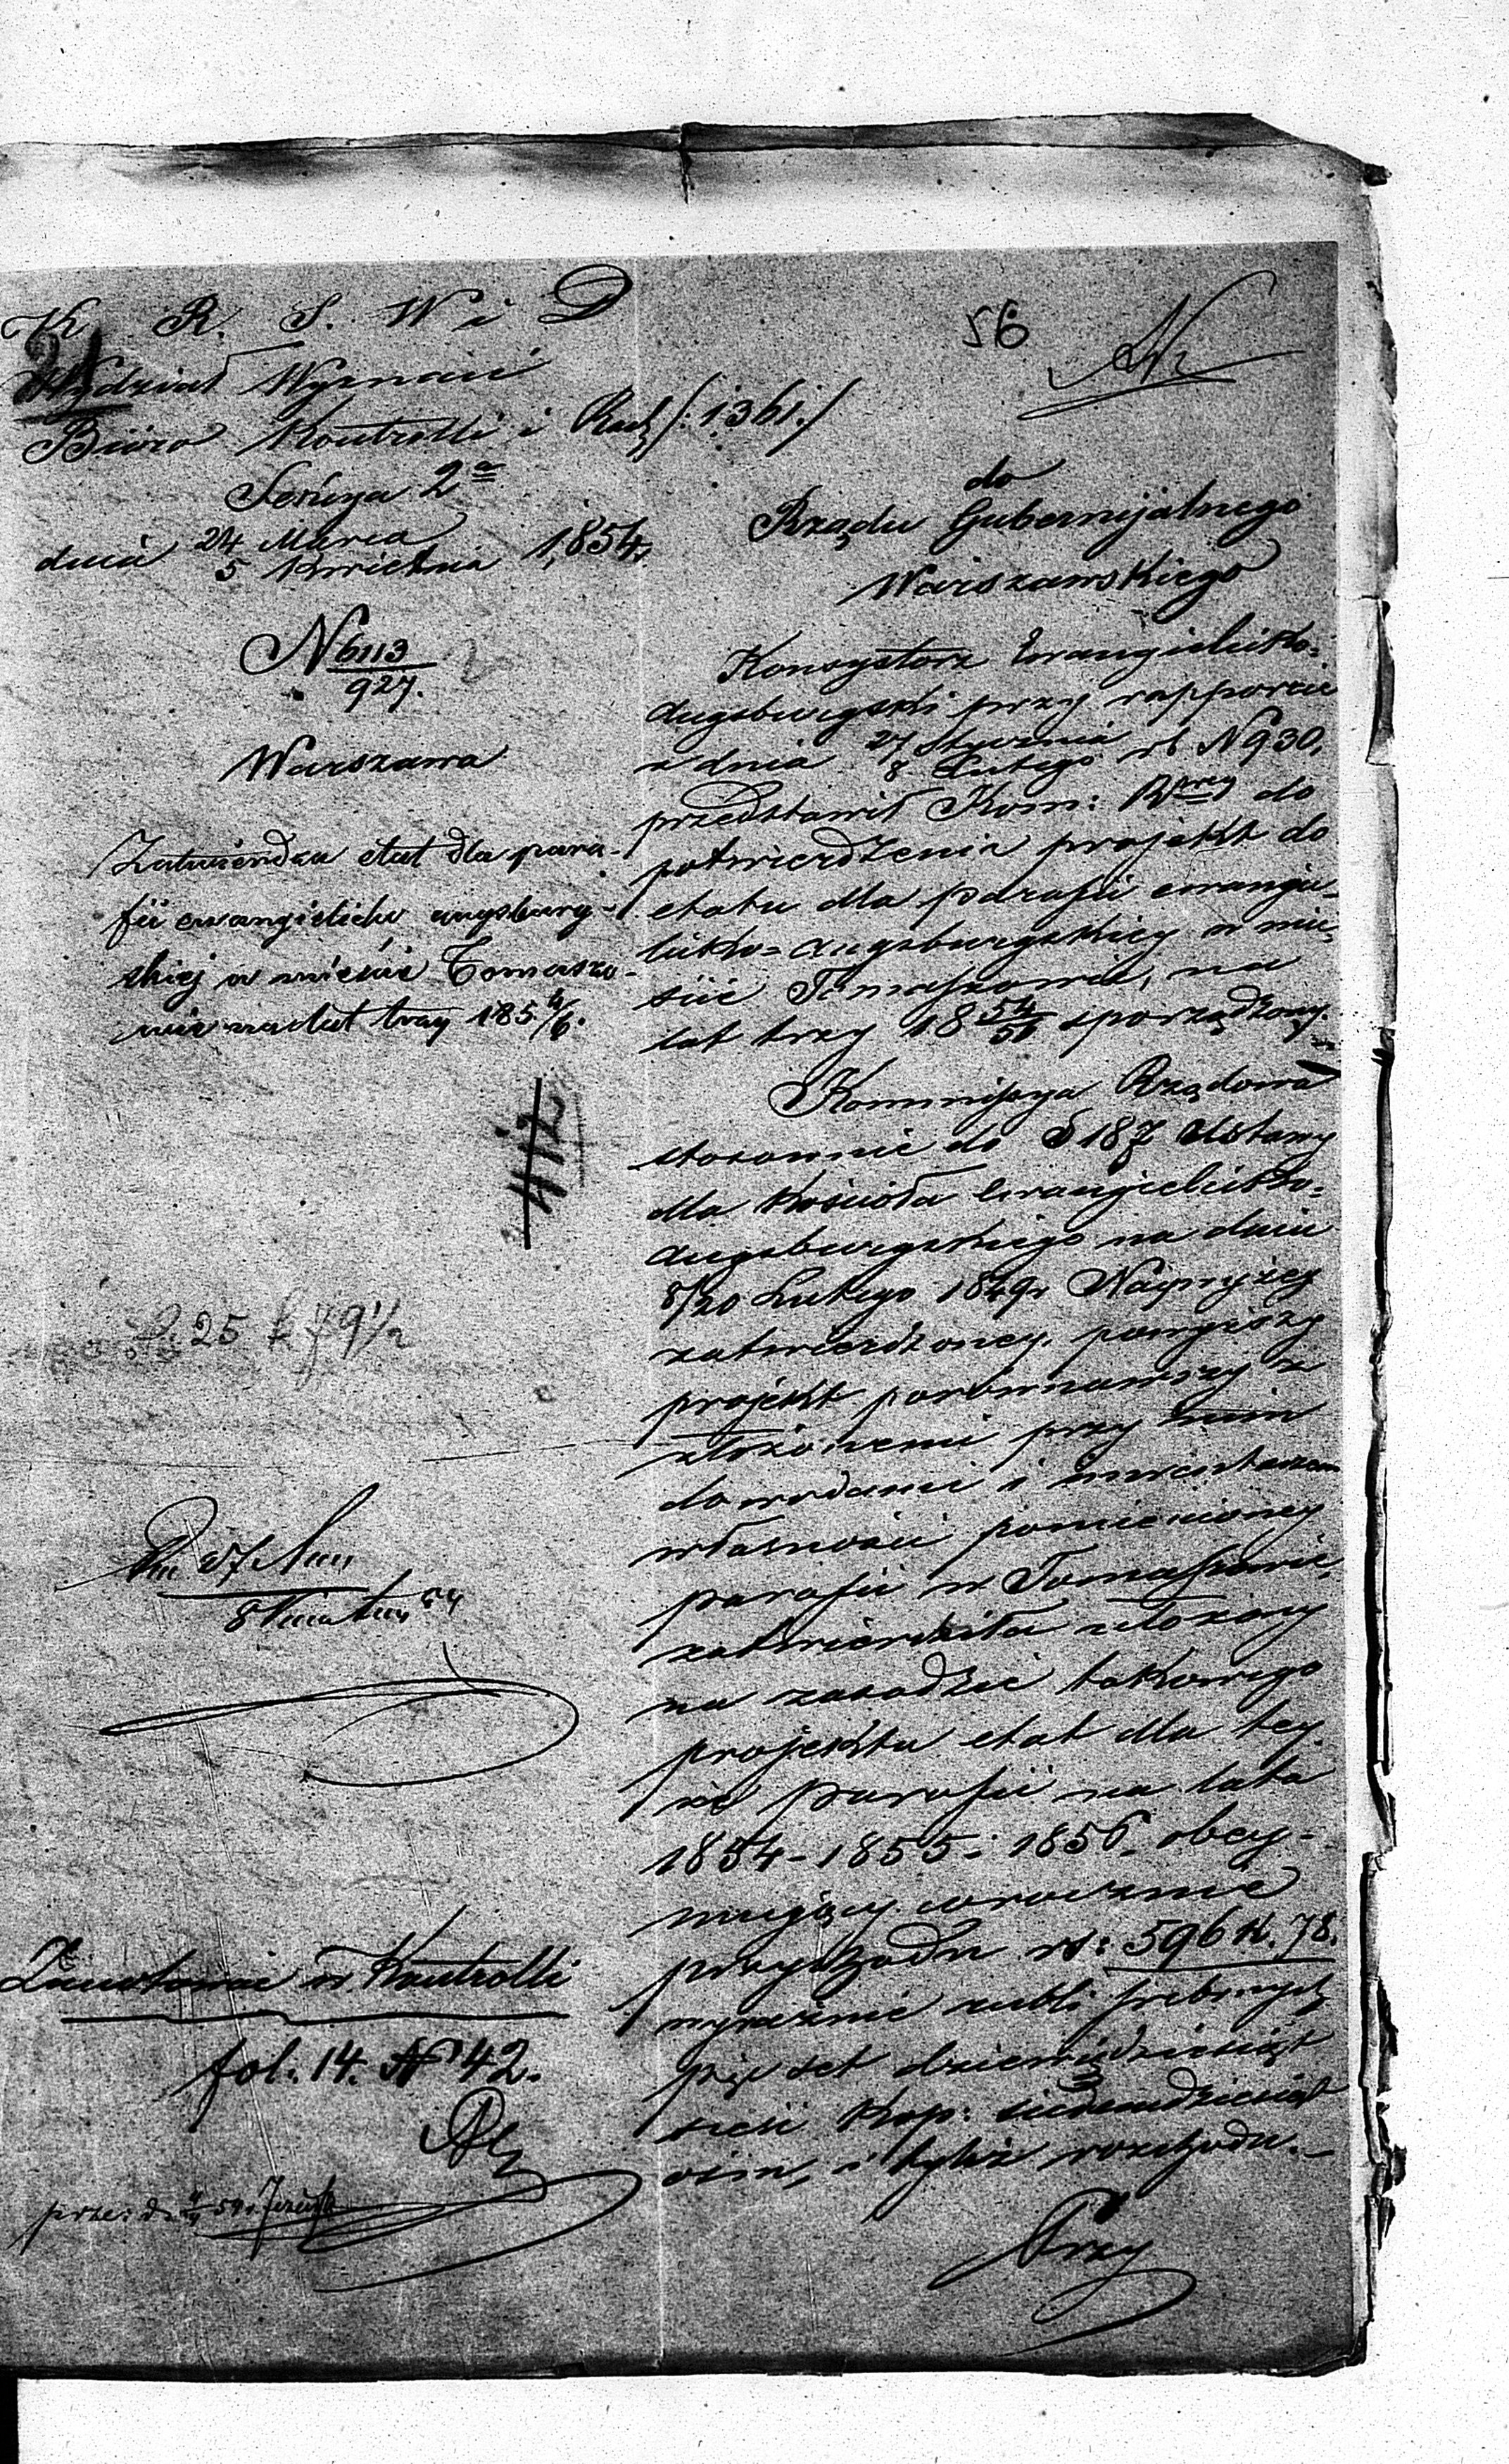 K R. S. W i D
Wydział Wyznań
Biuro Kontrolli i Rach /: 1361 :/
Sekcya 2a
dnia 24 Marca
5 Kwietnia 1,854 r.
N 6113
927.
Warszawa
Zatwierdza etat dla para-
fii ewangielicko augsburg-
skiej w mieście Tomaszo-
wie na lat trzy 185 4/6.
112
25 k 79 1/2
Zanotowano w Kontrolli
fol. 14. N 42.
56
do
Rządu Gubernijalnego
Warszawskiego
Konsystorz Ewangielicko-
Augsburgski przy rapporcie
z dnia 27 Stycznia
8 Lutego rb N 930,
przedstawił Kom: Rwey do
potwierdzenia projekt do
etatu dla parafii ewangie-
licko=Augsburgskiey w mie-
ście Tomaszowie, na
lat trzy 18 54/56 sporządzony.
Kommissya Rządowa
stosownie do § 187 Ustawy
dla Kościoła Ewangielicko-
Augsburgskiego na dniu
8/20 Lutego 1849 r Naywyżey
zatwierdzoney, powyższy
projekt porównawszy z
złożonemi przy nim
dowodami i inwentarzem
własności pomienioney
parafii w Tomaszowie,
zatwierdziła ułożony
na zasadzie takowego
projektu etat dla tey-
że parafii na lata
1854 - 1855 - 1856. obey-
mujący corocznie
przychodu rs: 596 k. 78.
wyraźnie rubli srebrnych
pięć set dziewięćdziesiąt
sześć kop: siedmdziesiąt
ośm, i tyleż rozchodu. -
Przy